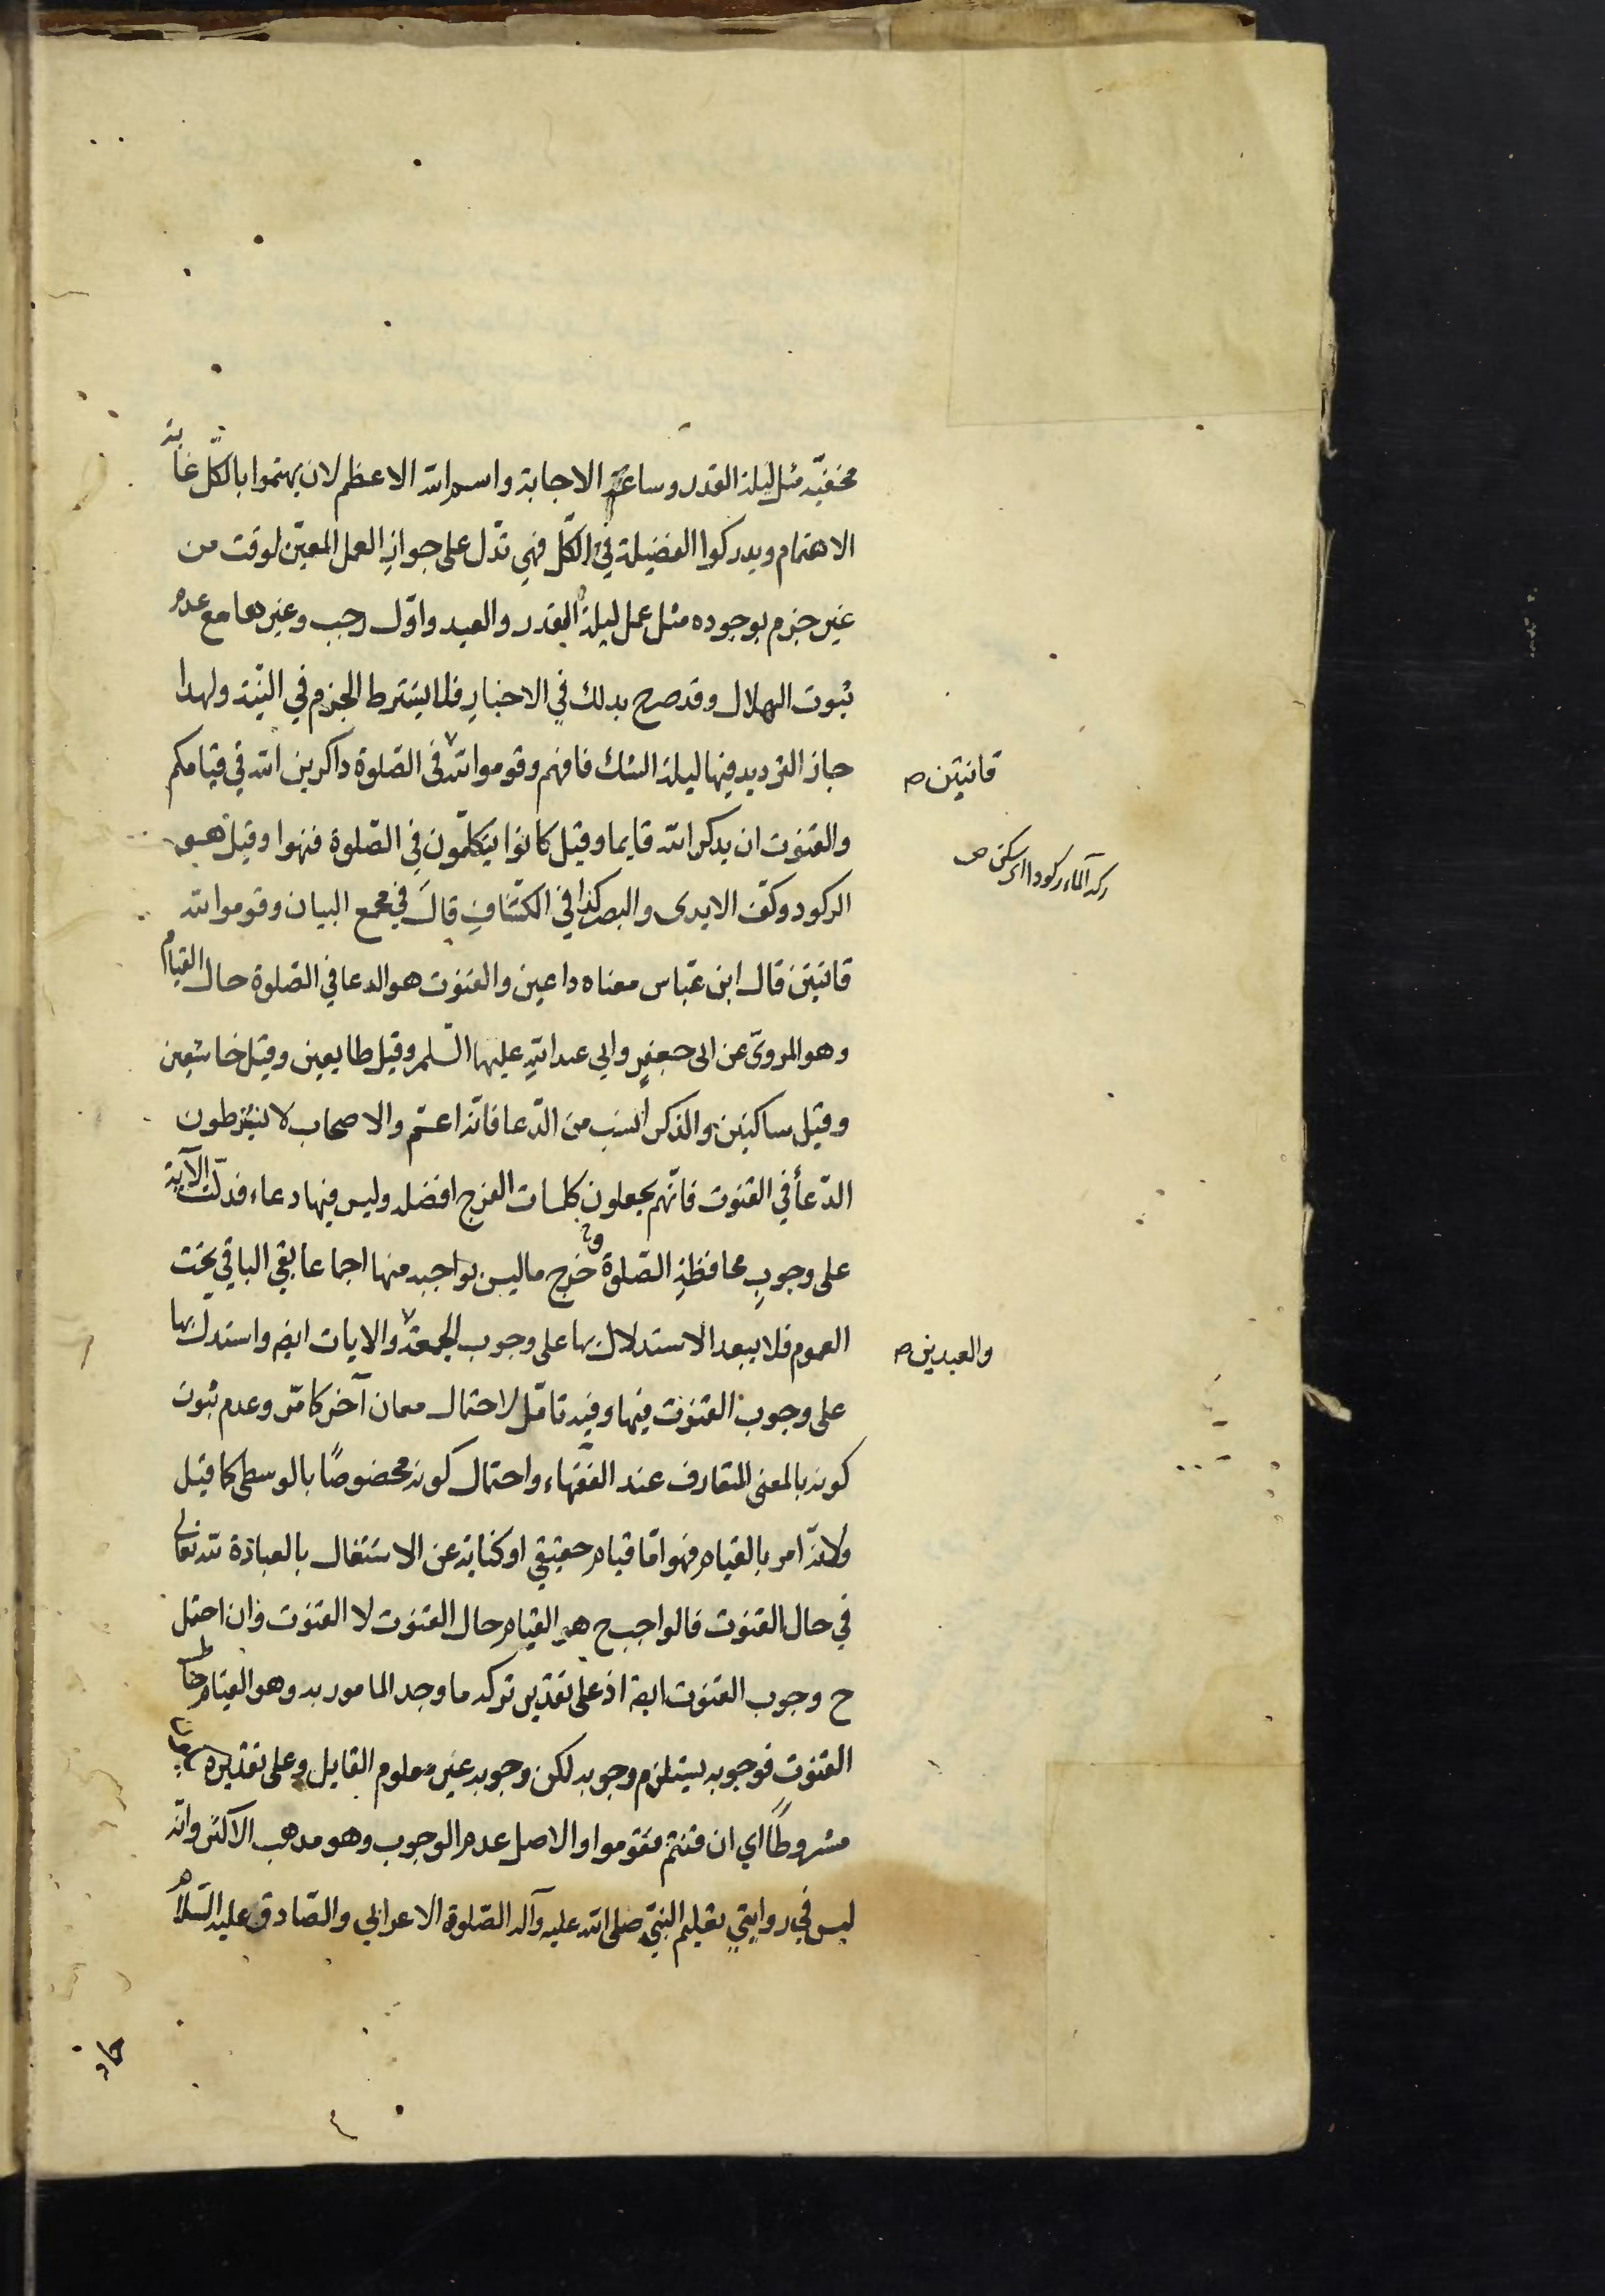 مخفيّة مثل ليلة القدر وساعة الاجابة واسم الله الاعظم لان يهتموا بالكّل غاية
الاهتمام ويدركوا الفضيلة في الكّل فهي تدّل على جواز العمل المعيّن لوقت من
غير جزم بوجوده مثل عمل ليلة القدر والعيد واوّل رجب وغيرها مع عدم
ثبوت الهلال وقد صرح بذلك في الاخبار فلا يشترط الجزم في النيّة ولهذا
جاز الترديد فيها ليلة الشك فافهم وقوموا لله في الصّلوة ذاكرين الله في قيامكم
قانتين صح
والقنوت ان يذكر الله قايما وقيل كانوا يتكلّمون في الصّلوة فنهوا وقيل هو
ركد الماء ركودا اى سكن ص
الركود وكفّ الايدى والبصر كذا في الكشّاف قال في مجمع البيان وقوموا لله
قانتين قال ابن عبّاس معناه داعين والقنوت هو الدعا في الصّلوة حال القيام
وهو المروىّ عن ابى جعفر وابي عبد الله عليهما السّلم وقيل طايعين وقيل خاشعين
وقيل ساكنين والذكر انسب من الدّعا فانّه اعمّ والاصحاب لا يشترطون
الدّعأ في القنوت فانّهم يجعلون كلمات الفرج افضله وليس فيها دعاء فدلّت الآية
على وجوب محافظة الصّلوة وخرج ما ليس بواجبه منها اجماعا بقي الباقي تحت
العموم فلا يبعد الاستدلال بها على وجوب الجمعة والايات ايضا واستدل بها
والعيدين صح
على وجوب القنوت فيها وفيه تامّل لاحتمال معان آخر كما مّر وعدم ثبوت
كونه بالمعنى المتعارف عند الفقهاء واحتمال كونه مخصوصًا بالوسطى كما قيل
ولانّه امر بالقيام فهو امّا قيام حقيقي او كناية عن الاشتغال بالعبادة لله تعالى
في حال القنوت فالواجب ح هو القيام حال القنوت لا القنوت وان احتمل
ح وجوب القنوت ايضا اذ على تقدير تركه ما وجد المامور به وهو القيام حال
القنوت فوجوبه يستلزم وجوبه لكن وجوبه غير معلوم القايل وعلى تقديره
مشروطًا اي ان قنتم فقوموا والاصل عدم الوجوب وهو مذهب الاكثر وانّه
ليس في روايتي تعليم النبّي صلى الله عليه وآله الصّلوة الاعرابي والصّادق عليه السّلام